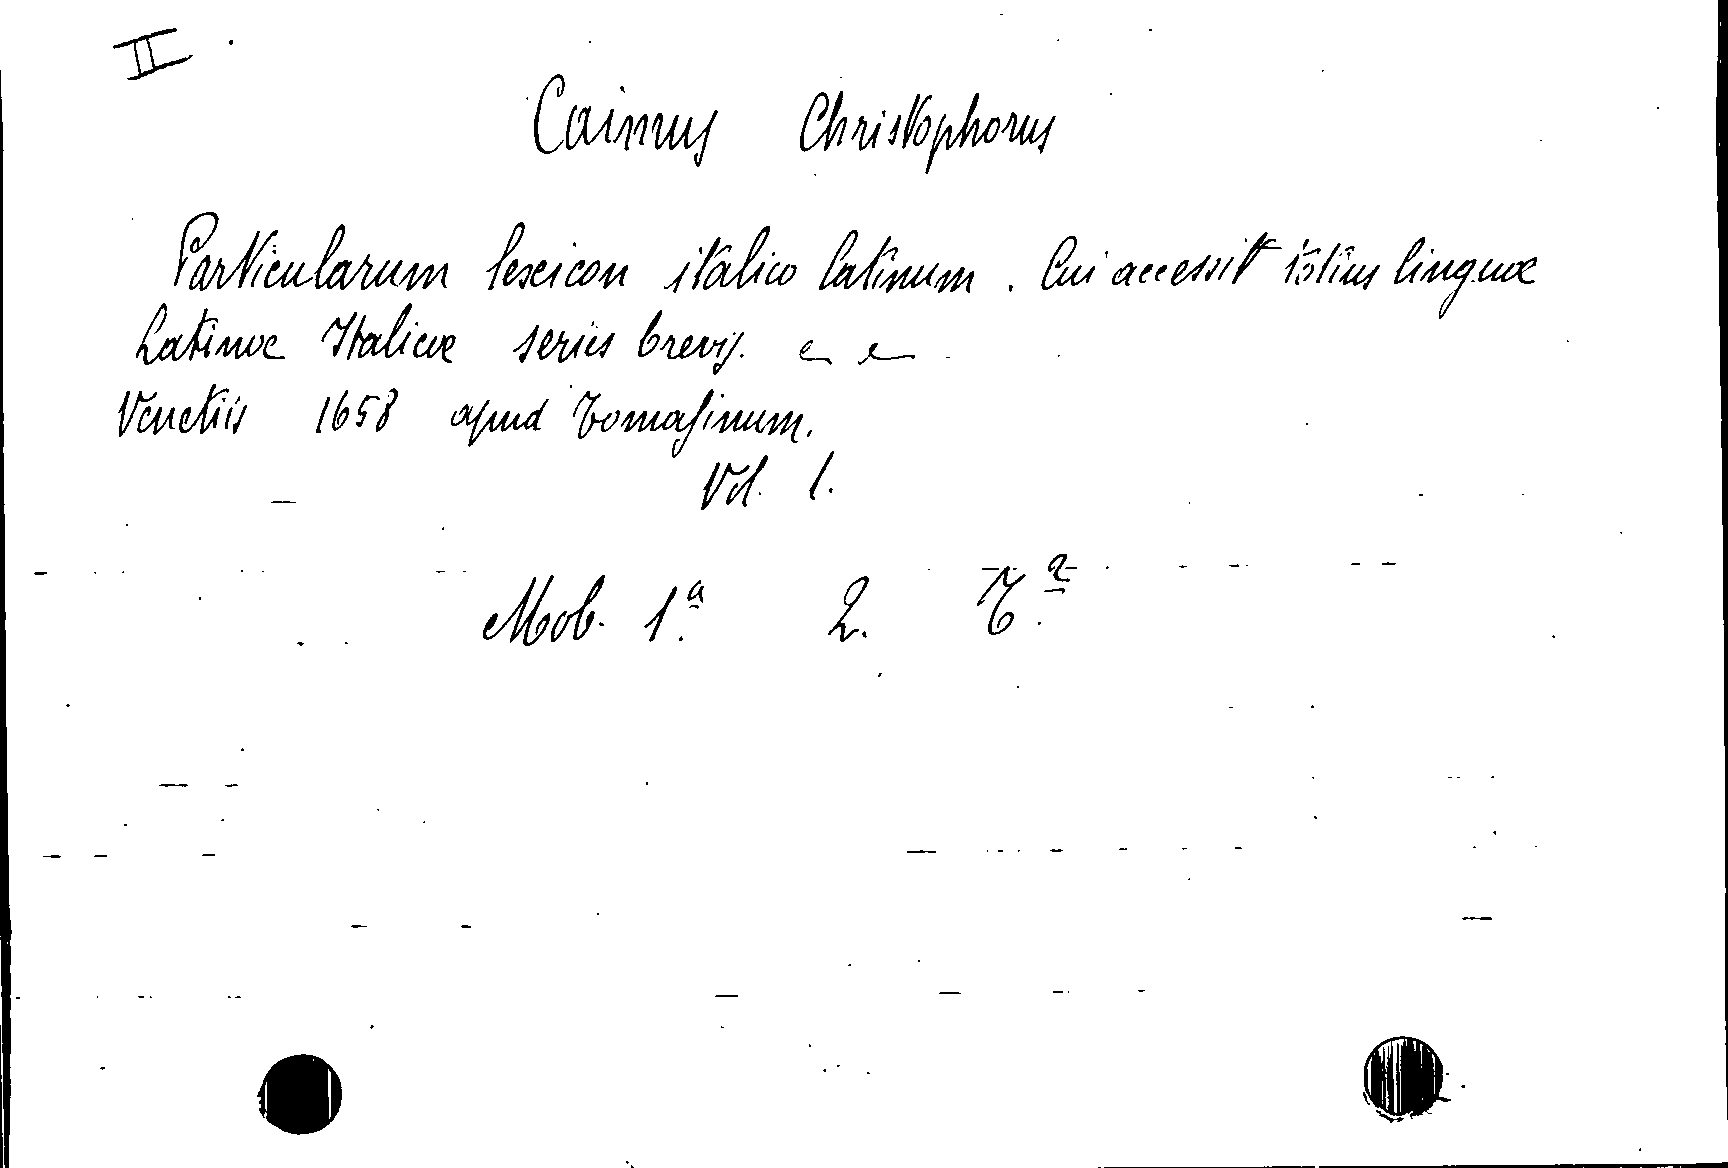 II
Caimus Christophorus
Particularum lexicon italico latinum. Cui accessit totius linguæ
Latinæ Italicæ series brevis.
Venetiis 1658 apud Tomasinum.
Vol. 1.
Mob. 1.ª 2. T.ª